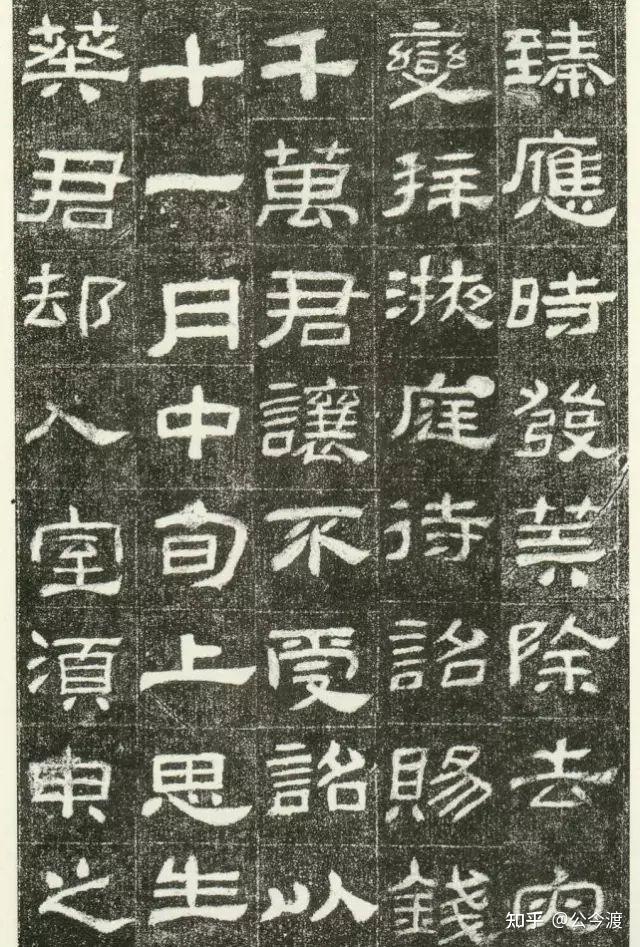 臻應時發筭除去灾
變拜掖庭待詔賜錢
千萬君讓不受詔以
十一月中旬上思生
葵君却入室須臾之
知乎 @公今渡